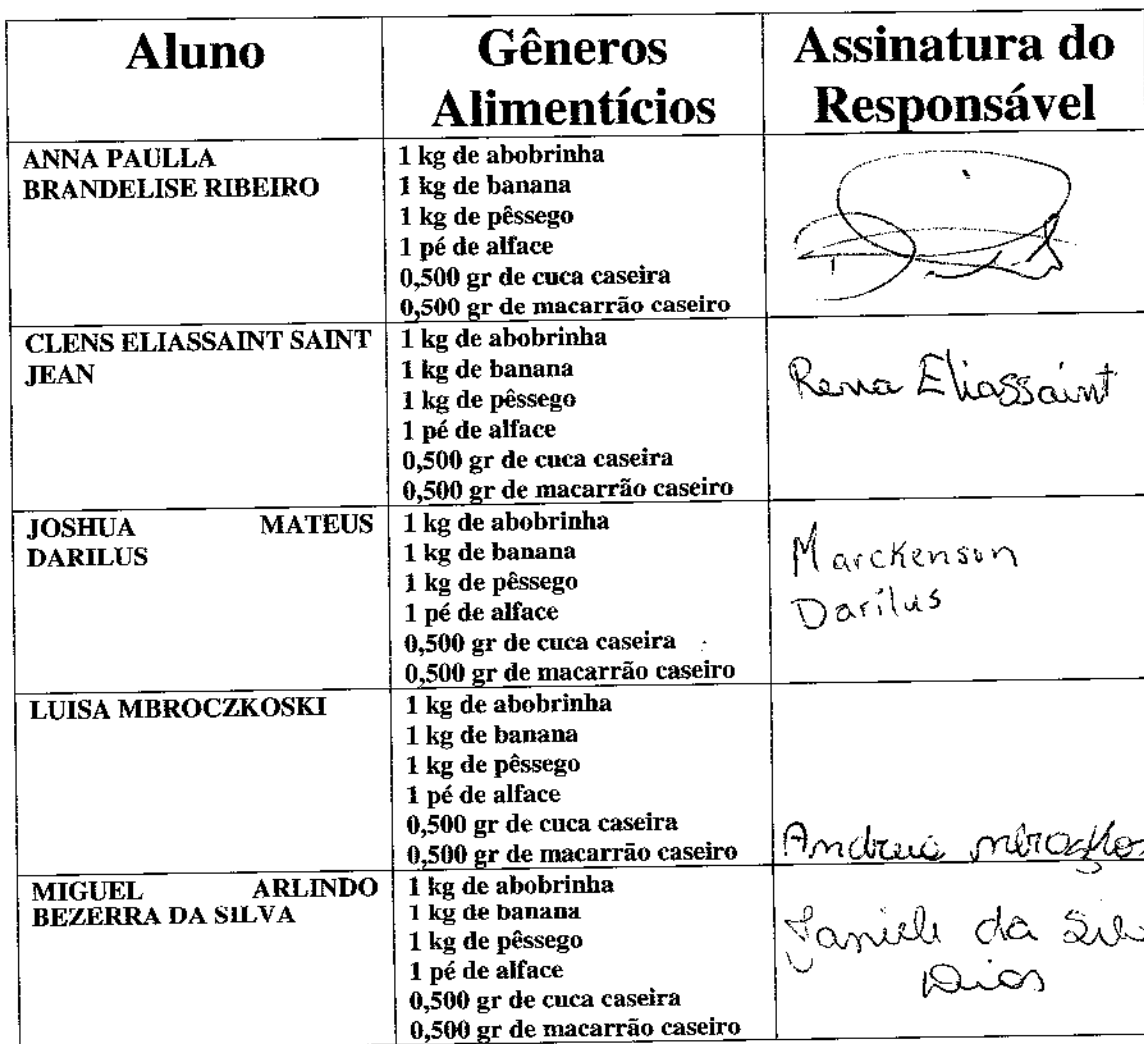 Aluno
Gêneros Alimentícios
Assinatura do Responsável
ANNA PAULLA
BRANDELISE RIBEIRO
1 kg de abobrinha
1 kg de banana
1 kg de pêssego
1 pé de alface
0,500 gr de cuca caseira
0,500 gr de macarrão caseiro
CLENS ELIASSAINT SAINT
JEAN
1 kg de abobrinha
1 kg de banana
1 kg de pêssego
1 pé de alface
0,500 gr de cuca caseira
0,500 gr de macarrão caseiro
Rena Eliassaint
JOSHUA MATEUS
DARILUS
1 kg de abobrinha
1 kg de banana
1 kg de pêssego
1 pé de alface
0,500 gr de cuca caseira
0,500 gr de macarrão caseiro
Marckenson
Darilus
LUISA MBROCZKOSKI
1 kg de abobrinha
1 kg de banana
1 kg de pêssego
1 pé de alface
0,500 gr de cuca caseira
0,500 gr de macarrão caseiro
MIGUEL ARLINDO
BEZERRA DA SILVA
1 kg de abobrinha
1 kg de banana
1 kg de pêssego
1 pé de alface
0,500 gr de cuca caseira
0,500 gr de macarrão caseiro
da
Dias